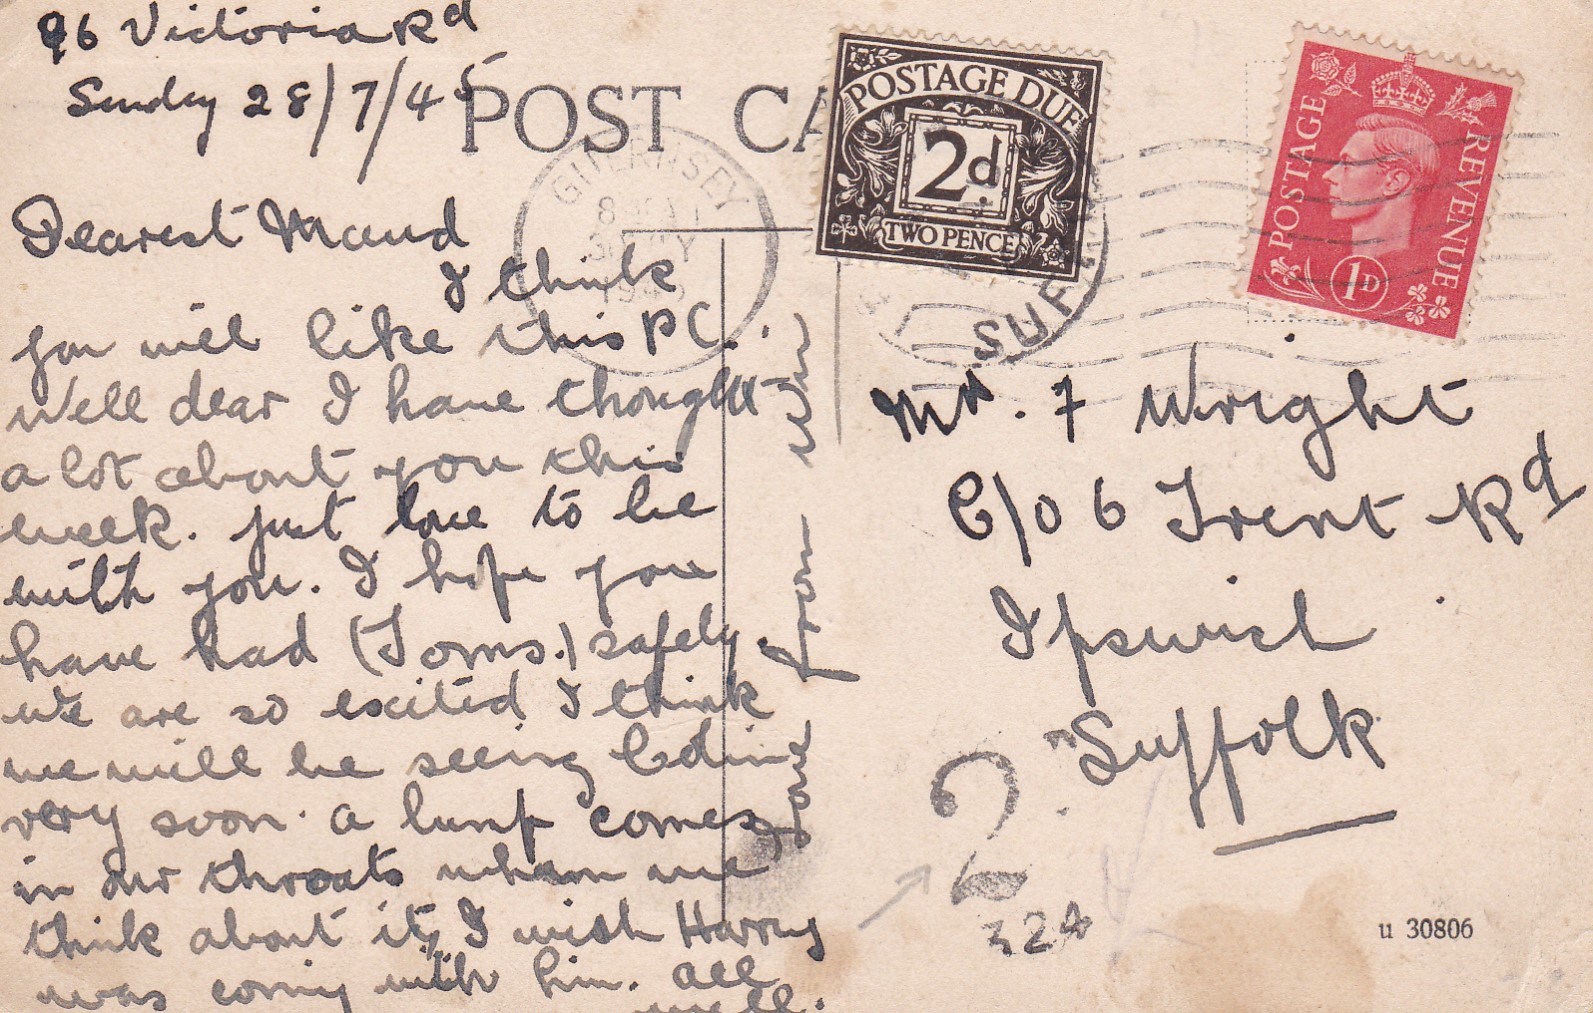 96 Victoria Rd
Sunday 28/7/45
POST CA
Dearest Maud
I think
you will like this PC.
Well dear I have thought
a lot about you this
week. just love to be
with you. I hope you
have had (Toms.) safely
we are so excited I think
we will be seeing Edin
very soon. a lump comes
in our throats when we
think about it, I wish Harry
was coming with him. all
well.
love from
GUERNSEY
POSTAGE DUE
2d.
TWO PENCE
SUF
POSTAGE
REVENUE
1D
Mr. F Wright
C/O 6 Trent Rd
Ipswich
Suffolk
2
324
u 30806